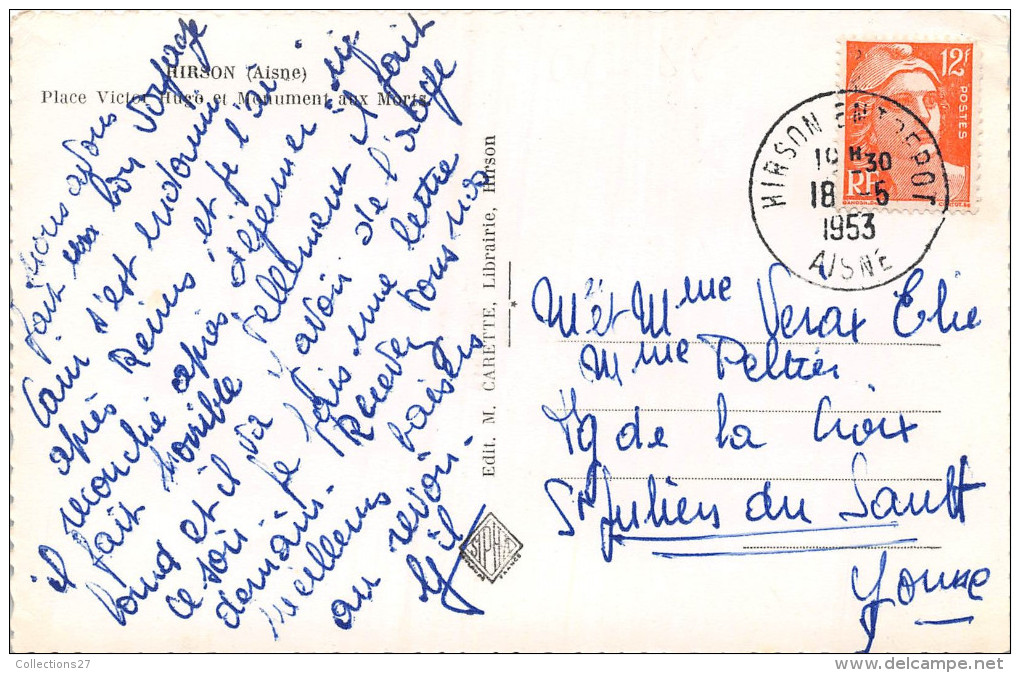 HIRSON (Aisne)
Place Victor Hugo et Monument aux Morts
Nous avons
fait un bon voyage
Cam s'est endormi
après Reims et je l'ai
recouché après déjeuner ici
il fait horrible tellement il fait
lourd et il va y avoir de l'orage
ce soir je fais une lettre
demain. Recevez tous nos
meilleurs baisers
au revoir.
Gil
Edit. M. CARETTE, Librairie, Hirson
12F
POSTES
RF
HIRSON ENTREPOT
19H30
18 -5
1953
AISNE
M et Mme Verax Elie
Mme Peltier
Fg de la Croix
St Julien du Sault
Yonne
Collections27
www.delcampe.net